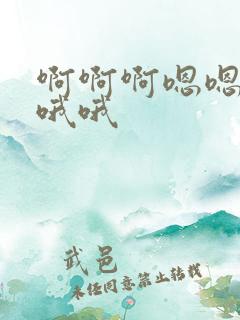 啊啊啊嗯嗯
哦哦
武邑
未经同意禁止转载